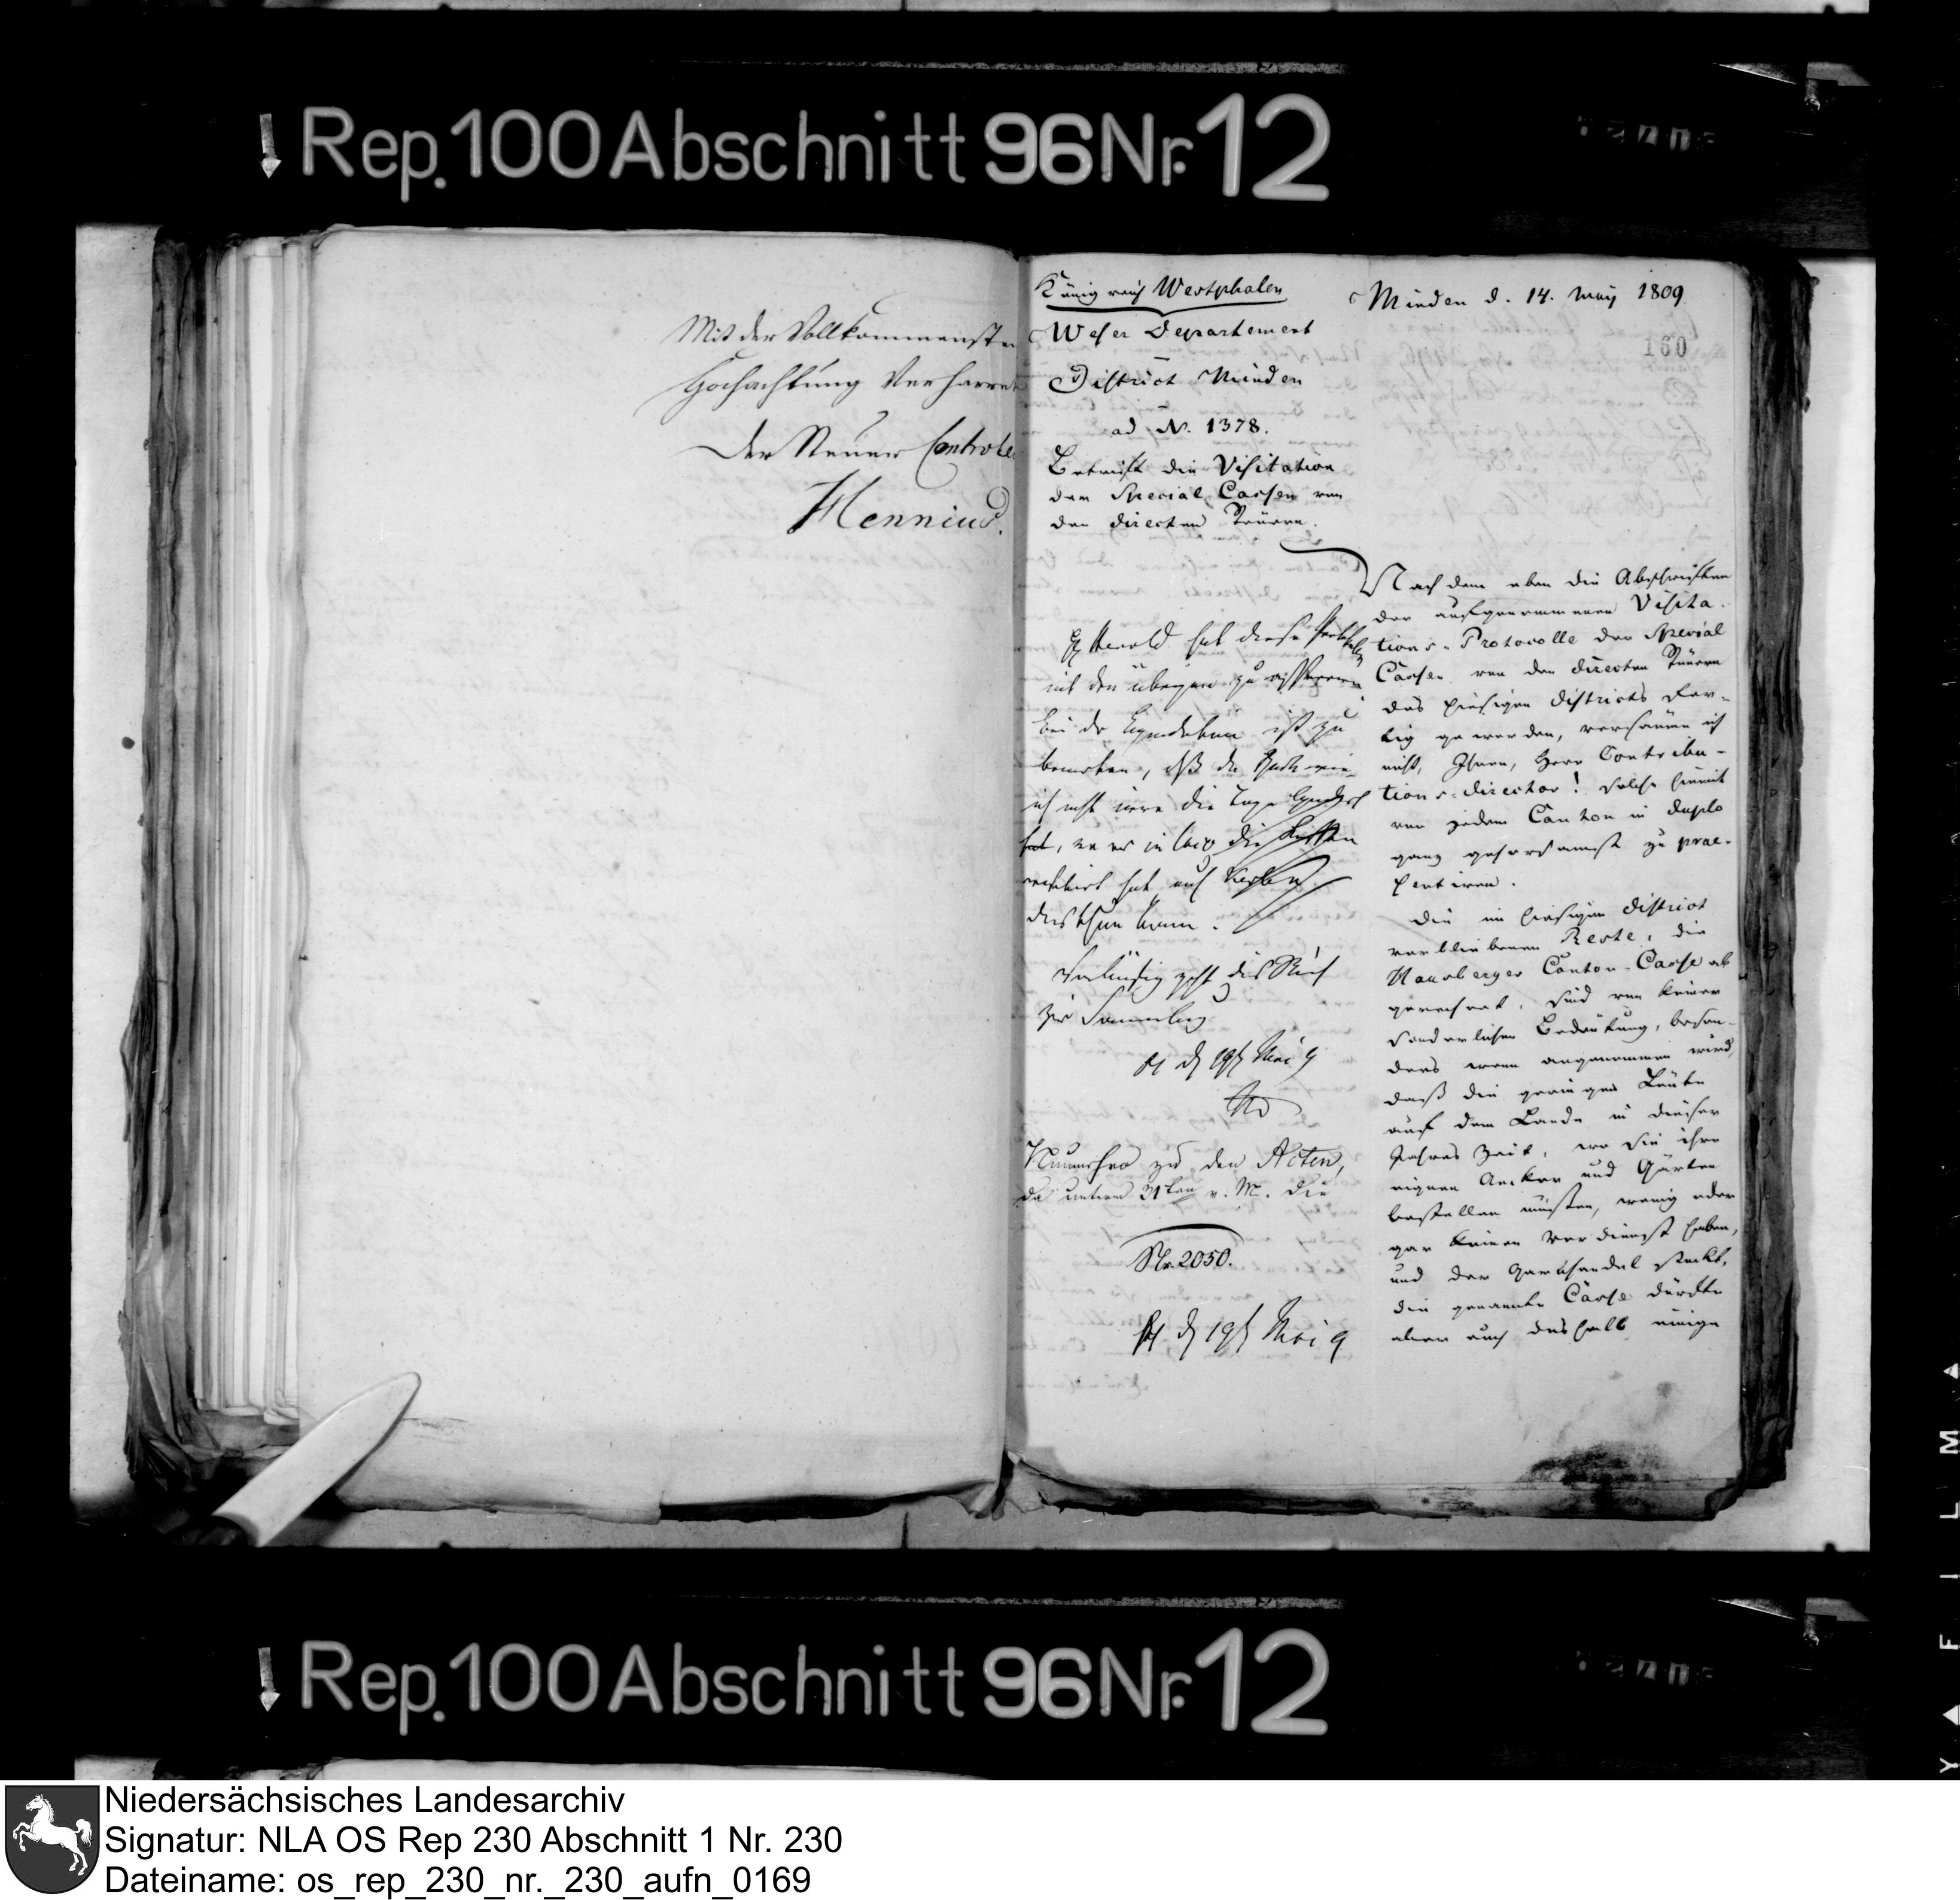 Rep. 100 Abschnitt 96 Nr. 12
Mit der Vollkommensten
Hochachtung Verharret
Der Steuer Controle
Hennius.
Königreich Westphalen
Weser Departement
District Minden
ad N. 1378.
Betrift die Visitation
der Special Cassen von
den directen Steuern.
Minden d. 14. May 1809
160
Nachdem eben die Abschriften
der aufgenommenen Visita-
tions-Protocolle der Special
Cassen von den directen Steuern
des hiesigen Districts fer-
tig geworden, versäume ich
nicht, Ihnen, Herr Contribu-
tions-Director! solche hiemit
von jedem Canton in duplo
ganz gehorsamst zu prae-
sentiren.
Die im hiesigen District
verbliebenen Reste, die
Hausberger Canton-Casse ab
gerechnet, sind von keiner
sonderlichen Bedeutung, beson-
ders wenn angenommen wird,
daß die geringen Leute
auf dem Lande in dieser
Jahres Zeit, wo sie ihre
eignen Aecker und Gärten
bestellen müssen, wenig oder
gar keinen Verdienst haben,
und der Garnhandel stockt,
die genannte Casse dürfte
aber auch deshalb einige
Herold hat diese
mit den übrigen zu
bei der ist zu
bemerken, daß die
ich nicht die Tage
hat, wo er in loco die Cassen
revidirt hat, auch
dies thun kann.
Vorläufig geht dies Stück
zur Sammlung
d 19 Mai 9
Nunmehro zu den Acten,
da unterm 31ten v. M. die
Nr. 2050.
d 19 Mai 9
Rep. 100 Abschnitt 96 Nr. 12
Niedersächsisches Landesarchiv
Signatur: NLA OS Rep 230 Abschnitt 1 Nr. 230
Dateiname: os_rep_230_nr._230_aufn_0169